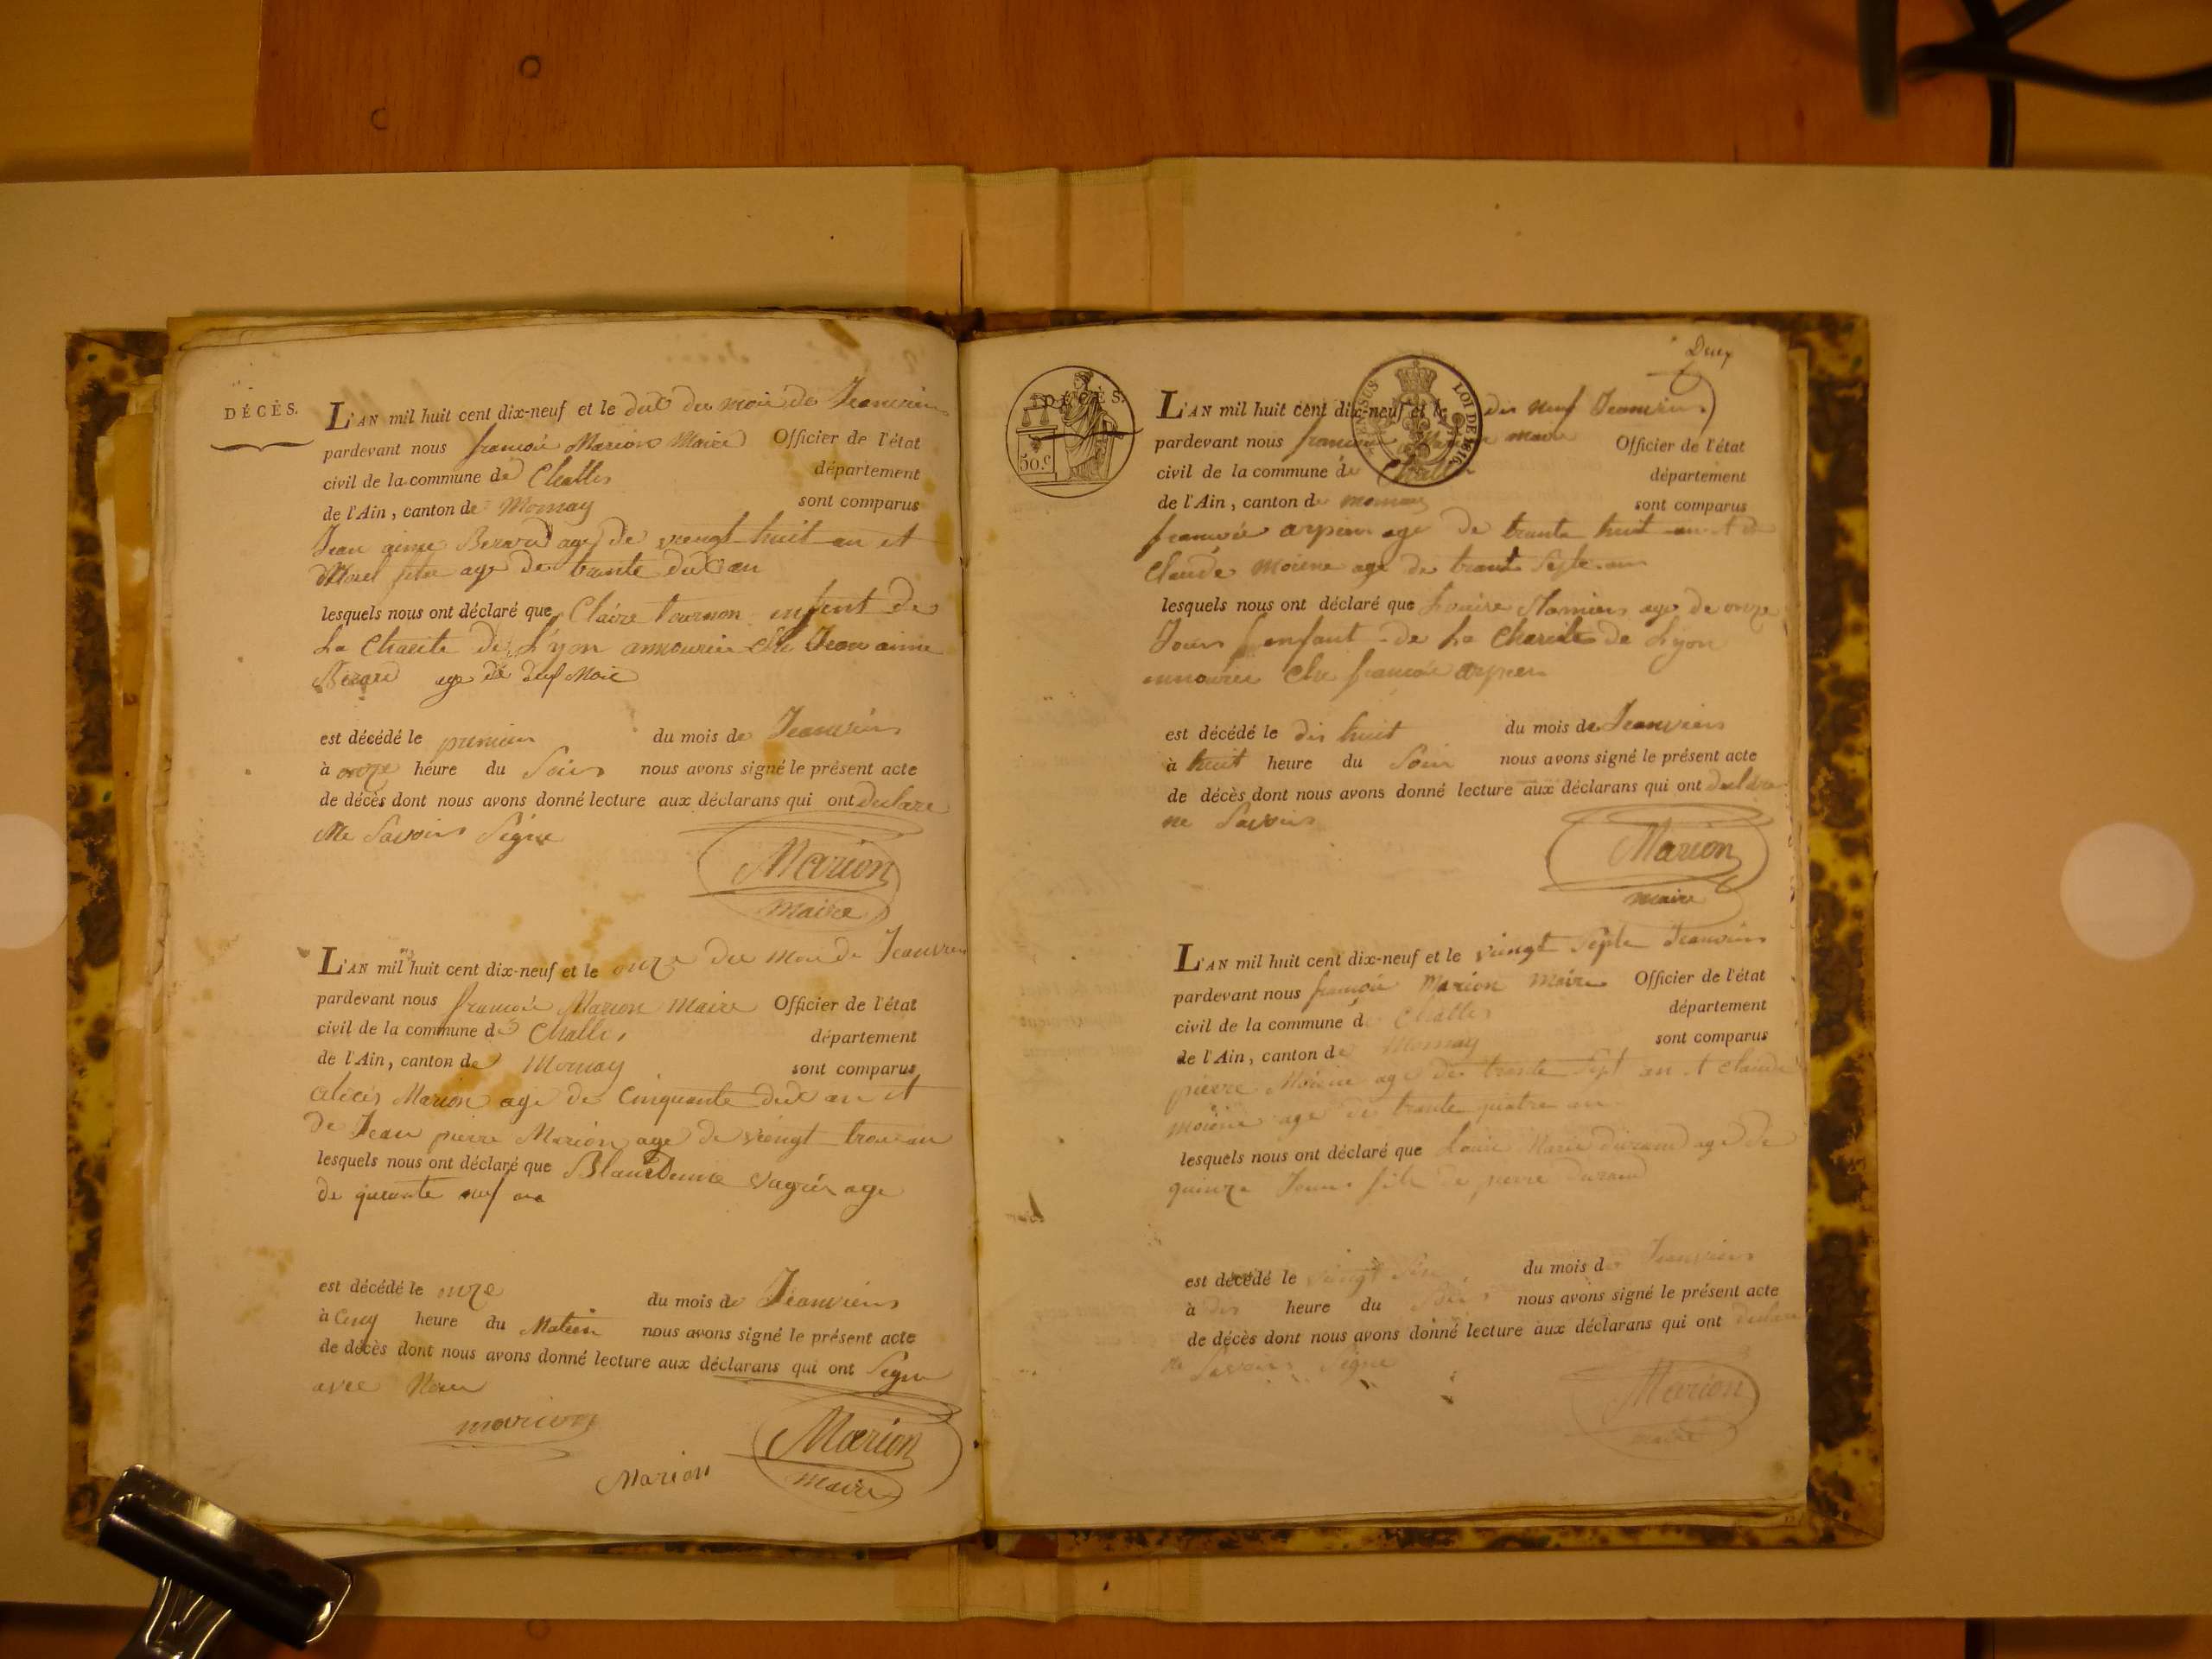 DÉCÈS.
L'AN mil huit cent dix-neuf et le deux du mois de Jeanviers
pardevant nous françois Marion Maire Officier de l'état
civil de la commune de Challes département
de l'Ain, canton de Mornay sont comparus
Jean aime Berard age de vengt huit an et
age de trante deux an
lesquels nous ont déclaré que Claire tournon enfent de
La Charite de Lyon annourir Che Jean aime
Berard age de deuf Moie
est décédé le premier du mois de Jeanviers
à onze heure du Soirs nous avons signé le présent acte
de décès dont nous avons donné lecture aux déclarans qui ont declare
Ne Savoirs Signe
Marion
maire
L'AN mil huit cent dix-neuf et le onze du mois de Jeanviers
pardevant nous françois Marion Maire Officier de l'état
civil de la commune de Challes département
de l'Ain, canton de Mornay sont comparus
Marion age de Cinquante deux an et
de Jean pierre Marion age de viengt troi an
lesquels nous ont déclaré que age
de quarante neuf ans
est décédé le onze du mois de Jeanviers
à Cinq heure du Matein nous avons signé le présent acte
de décès dont nous avons donné lecture aux déclarans qui ont Signe
avec Nous
marion
Marion
Marion
maire
Deux
DÉCÈS.
50.c
LOI DE 1816.
L'AN mil huit cent dix-neuf et le dis neuf Jeanviers
pardevant nous maire Officier de l'état
civil de la commune de Challes département
de l'Ain, canton de mornay sont comparus
françois arpin age de trante huit an et de
Claude Moiene age de trant Septe an
lesquels nous ont déclaré que age de onze
Jours enfant de La Charite de Lyon
annourir Che françois arpin
est décédé le dis huit du mois de Jeanviers
à huit heure du Soir nous avons signé le présent acte
de décès dont nous avons donné lecture aux déclarans qui ont declare
ne Savoirs
Marion
maire
L'AN mil huit cent dix-neuf et le viengt Septe Jeanviers
pardevant nous françois Marion Maire Officier de l'état
civil de la commune de Challes département
de l'Ain, canton de Mornay sont comparus
pierre Moiene age de trante Sept an et Claude
moiene age de trante quatre an
lesquels nous ont déclaré que Louis Marie durand age de
quinze Jours fils de pierre durand
est décédé le viengt Sis du mois de Jeanviers
à dis heure du Soirs nous avons signé le présent acte
de décès dont nous avons donné lecture aux déclarans qui ont declare
ne Savoirs Signe
Marion
maire